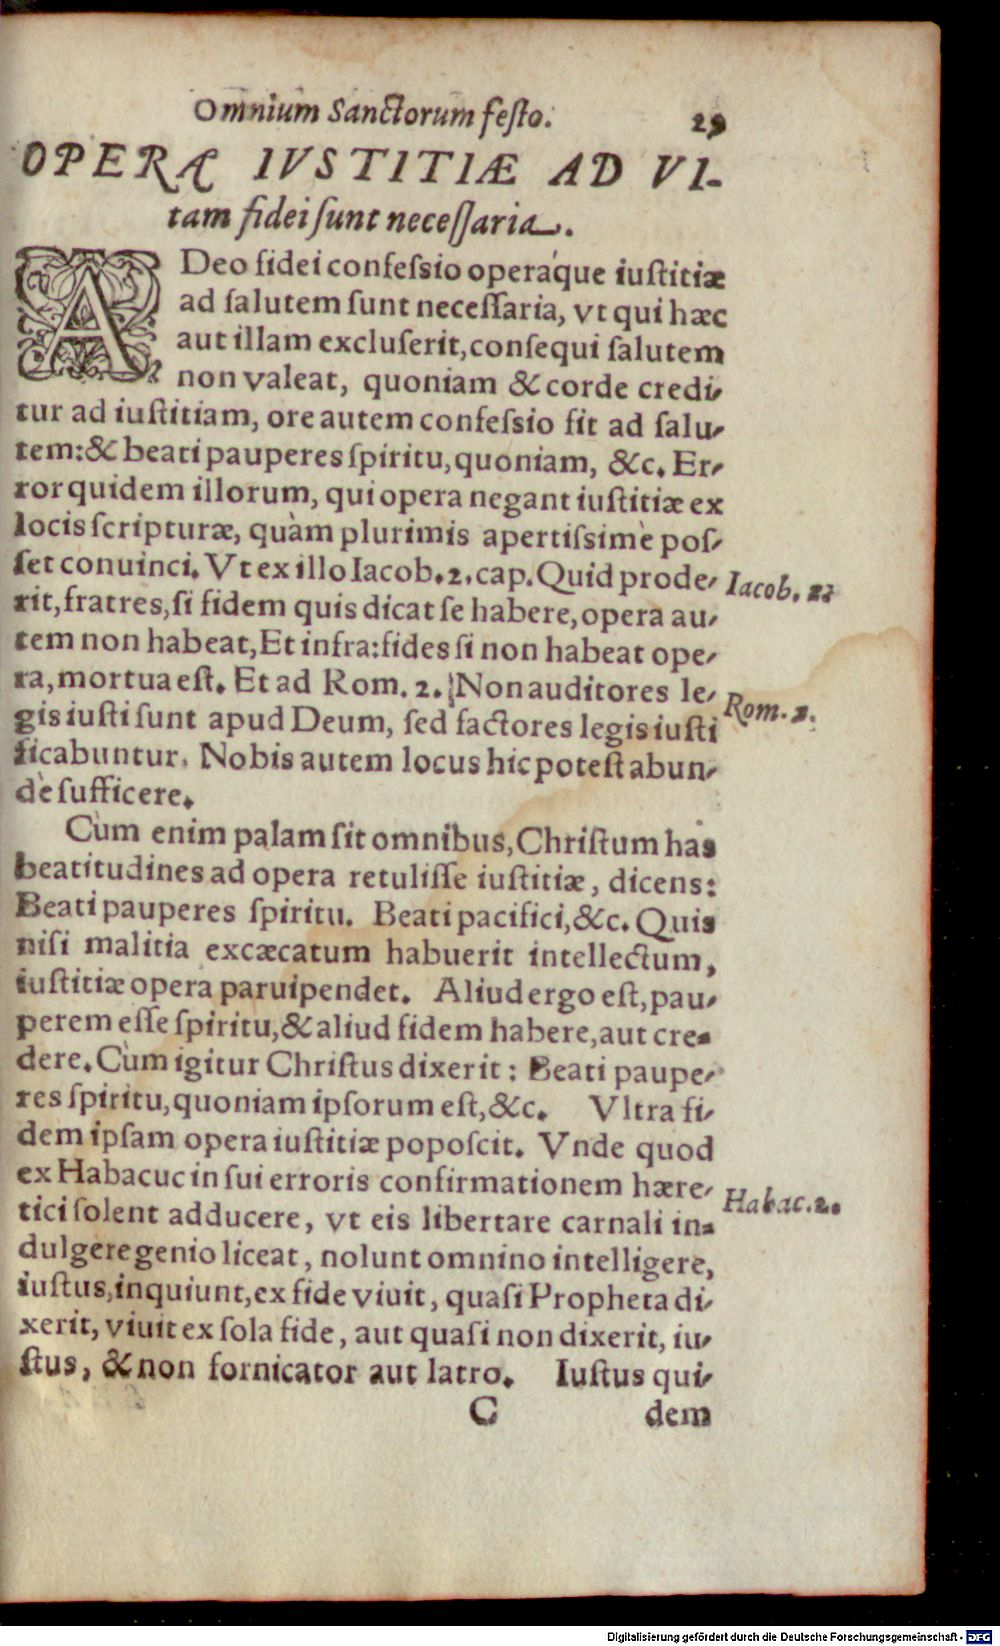 Omnium Sanctorum feſto. 29
OPERA IVSTITIÆ AD VI-
tam fidei ſunt neceſſaria.
ADeo fidei confeſsio operáque iuſtitiæ
ad ſalutem ſunt neceſſaria, vt qui hæc
aut illam excluſerit, conſequi ſalutem
non valeat, quoniam & corde credi-
tur ad iuſtitiam, ore autem confeſsio fit ad ſalu-
tem: & beati pauperes ſpiritu, quoniam, &c. Er-
ror quidem illorum, qui opera negant iuſtitiæ ex
locis ſcripturæ, quàm plurimis apertiſsimè poſ-
ſet conuinci. Vt ex illo Iacob. 2. cap. Quid prode- Iacob. 2.
rit, fratres, ſi fidem quis dicat ſe habere, opera au-
tem non habeat, Et infra: fides ſi non habeat ope-
ra, mortua eſt. Et ad Rom. 2. Non auditores le- Rom. 2.
gis iuſti ſunt apud Deum, ſed factores legis iuſti
ficabuntur. Nobis autem locus hic poteſt abun-
dè ſufficere.
Cùm enim palam ſit omnibus, Chriſtum has
beatitudines ad opera retuliſſe iuſtitiæ, dicens:
Beati pauperes ſpiritu. Beati pacifici, &c. Quis
niſi malitia excæcatum habuerit intellectum,
iuſtitiæ opera paruipendet. Aliud ergo eſt, pau-
perem eſſe ſpiritu, & aliud fidem habere, aut cre-
dere. Cùm igitur Chriſtus dixerit: Beati paupe-
res ſpiritu, quoniam ipſorum eſt, &c. Vltra fi-
dem ipſam opera iuſtitiæ popoſcit. Vnde quod
ex Habacuc in ſui erroris confirmationem hære- Habac. 2.
tici ſolent adducere, vt eis libertare carnali in-
dulgere genio liceat, nolunt omnino intelligere,
iuſtus, inquiunt, ex fide viuit, quaſi Propheta di-
xerit, viuit ex ſola fide, aut quaſi non dixerit, iu-
ſtus, & non fornicator aut latro. Iuſtus qui-
C dem
Digitalisierung gefördert durch die Deutsche Forschungsgemeinschaft - DFG